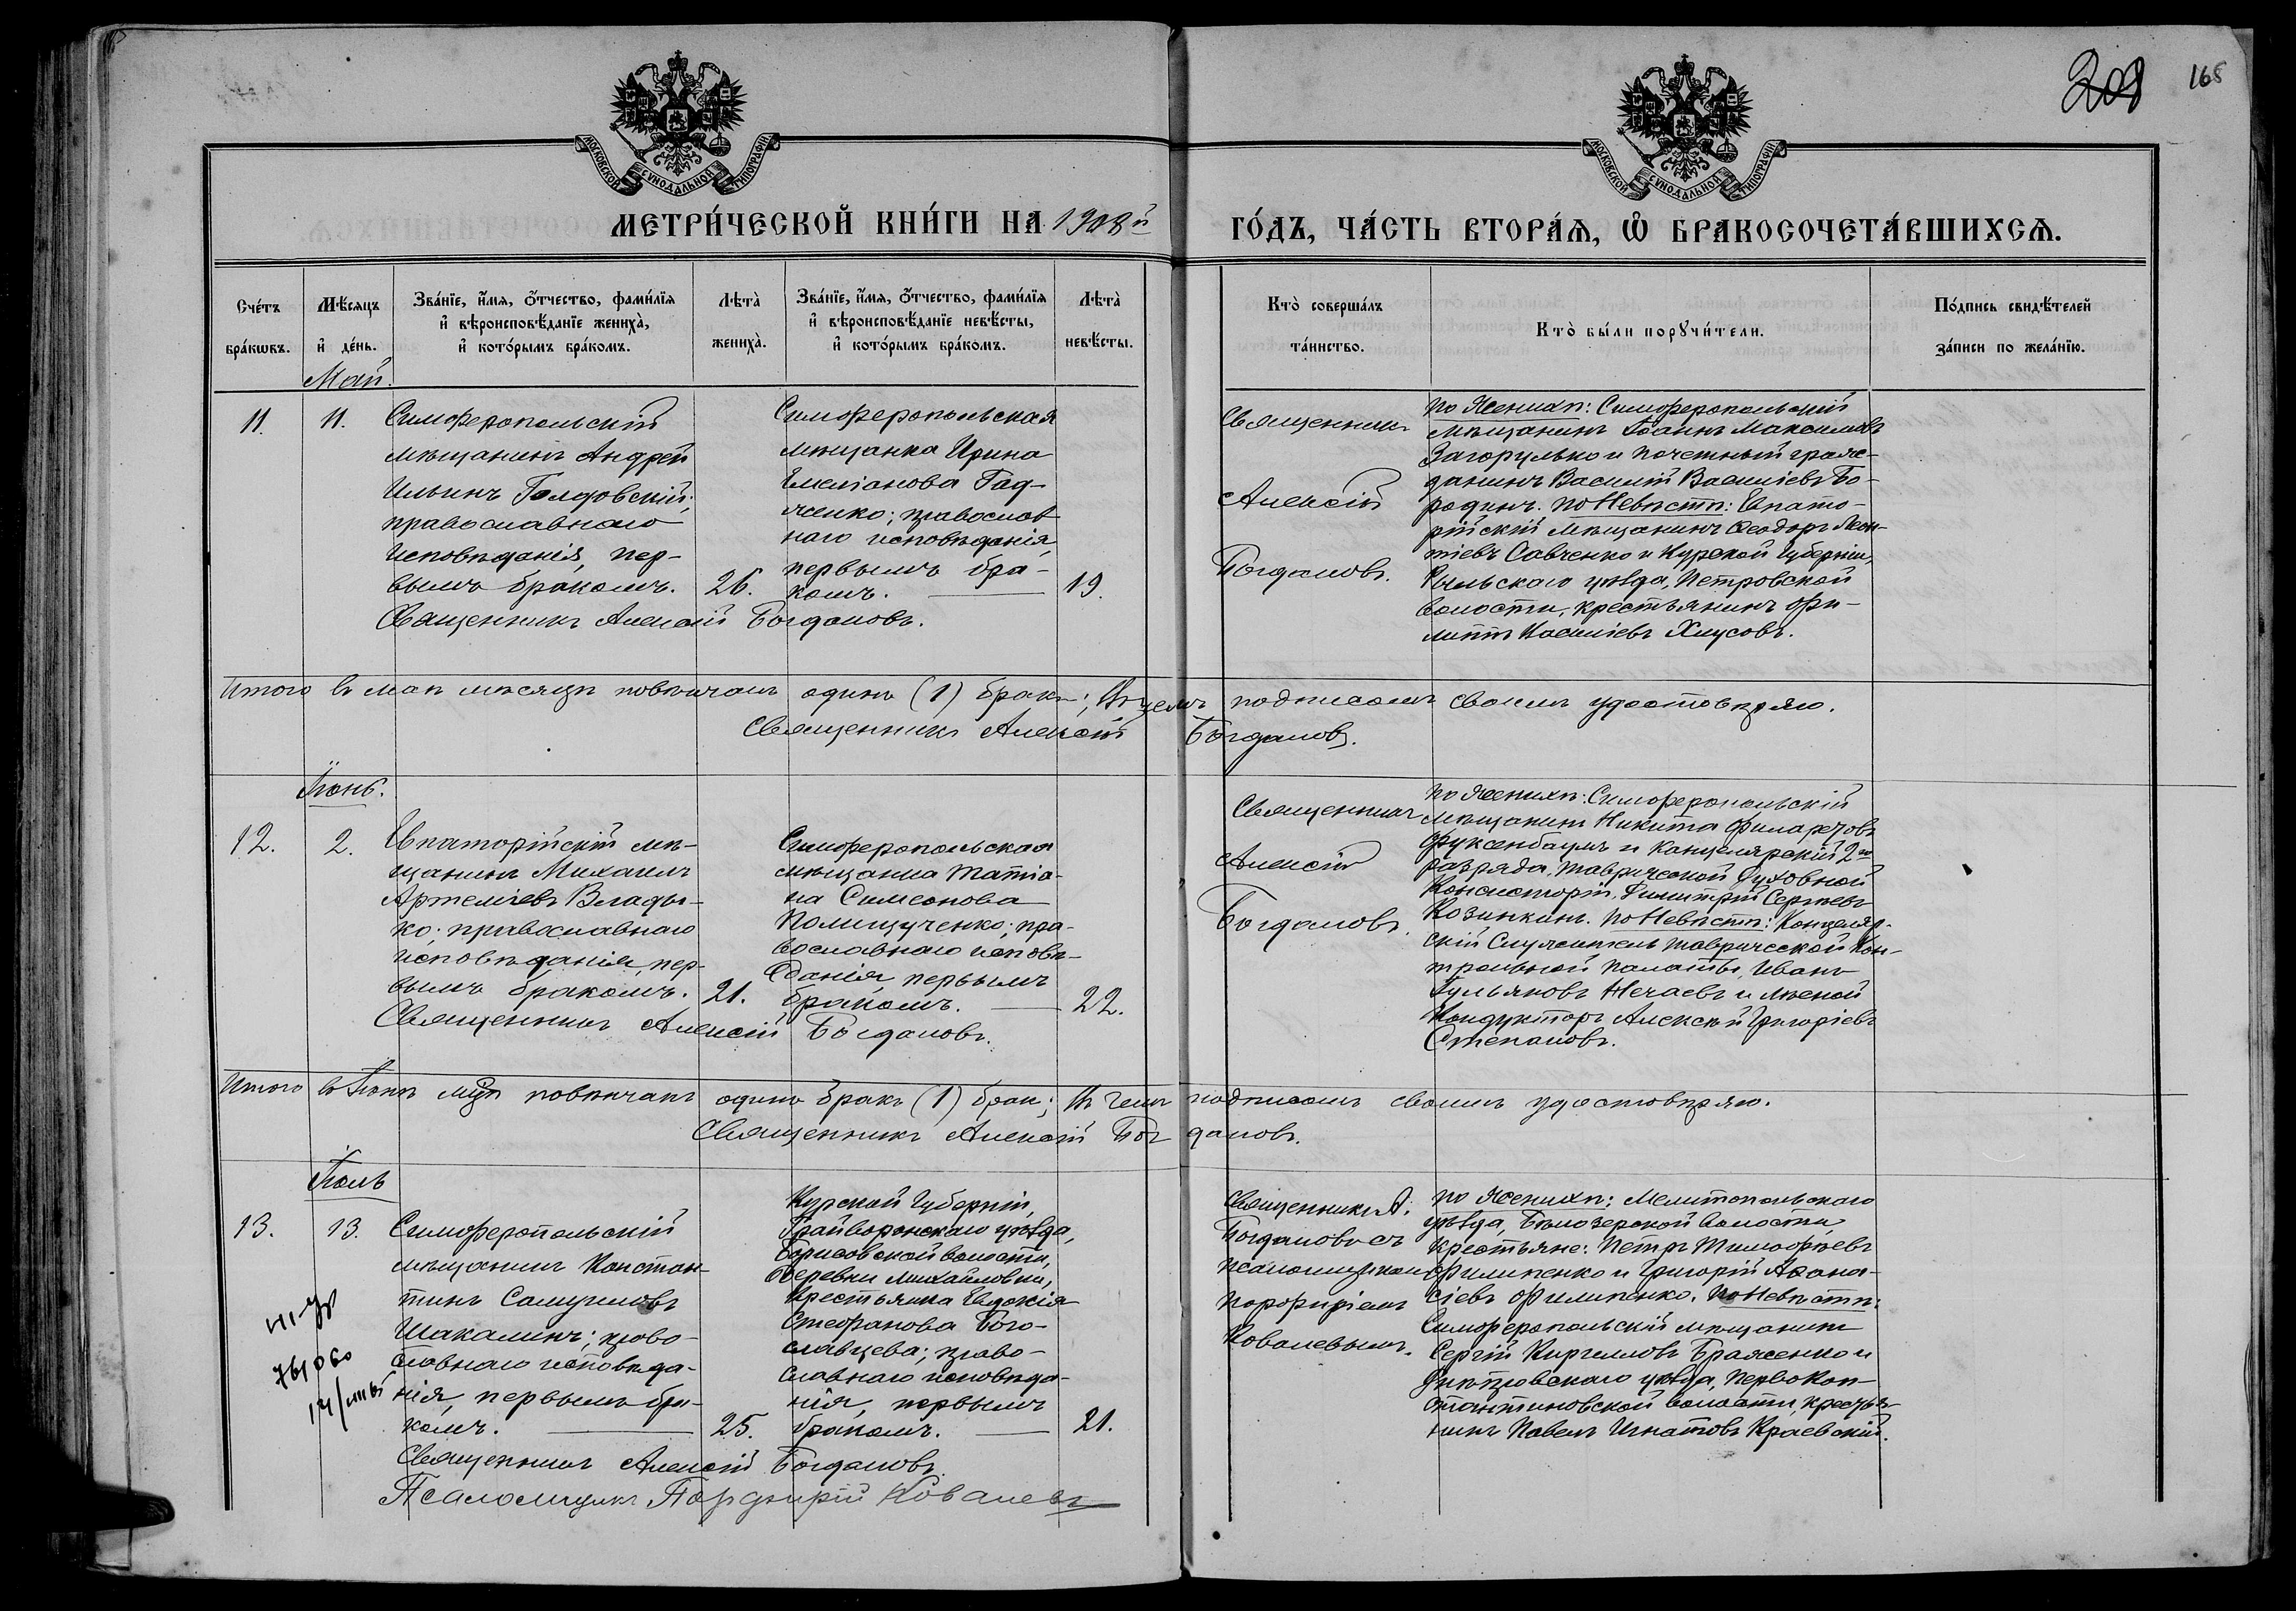 208 168
МОСКОВСКОЙ СѴНОДАЛЬНОЙ ТИПОГРАФІИ
МОСКОВСКОЙ СѴНОДАЛЬНОЙ ТИПОГРАФІИ
МЕТРИ́ЧЕСКОЙ КНИ́ГИ НА 1908й ГО́ДЪ, ЧА́СТЬ ВТОРА́Ѧ, Ѡ҆ БРАКОСОЧЕТА́ВШИХСѦ.
Сче́тъ
бра́кѡвъ.
Мѣ́сяцъ
и҆ де́нь.
Зва́нїе, и҆́мя, ѻ҆́тчество, фами́лїя
и҆ вѣроисповѣ́данїе женихà,
и҆ кото́рымъ бра́комъ.
Лѣтà
женихà.
Зва́нїе, и҆́мя, ѻ҆́тчество, фами́лїя
и҆ вѣроисповѣ́данїе невѣ́сты,
и҆ кото́рымъ бра́комъ.
Лѣтà
невѣ́сты.
Ктò соверша́лъ
та́инство.
Ктò бы́ли порꙋчи́тели.
По́дпись свидѣ́телей
за́писи по жела́нїю.
Май.
11.
11.
Симферопольскій
мѣщанинъ Андрей
Ильинъ Голдовскій;
православнаго
исповѣданія, пер-
вымъ бракомъ.
26.
Симферопольская
мѣщанка Ирина
Емеліанова Гад-
яченко; православ
наго исповѣданія,
первымъ бра-
комъ.
19.
Священникъ Алексій Богдановъ.
Священникъ
Алексій
Богдановъ.
По Женихѣ: Симферопольскій
мѣщанинъ Іоаннъ Максимовъ
Загорулько и почетный граж-
данинъ Василій Васильевъ Бо-
родинъ. По Невѣстѣ: Евпато-
рійскій мѣщанинъ Ѳеодоръ Леон-
тіевъ Савченко и Курской губерніи,
Рыльскаго уѣзда, Петровской
волости, крестьянинъ Фи-
липпъ Васильевъ Хмусовъ.
Итого въ маѣ мѣсяцѣ повѣнчанъ одинъ (1) бракъ; въ чемъ подписомъ своимъ удостовѣряю.
Священникъ Алексій Богдановъ.
Іюнь.
12.
2.
Евпаторійскій мѣ-
щанинъ Михаилъ
Артеміевъ Влады-
ко; православнаго
исповѣданія, пер-
вымъ бракомъ.
21.
Симферопольская
мѣщанка Татіа-
на Симеонова
Полищученко; пра-
вославнаго исповѣ-
данія, первымъ
бракомъ.
22.
Священникъ Алексій Богдановъ.
Священникъ
Алексій
Богдановъ.
По Женихѣ: Симферопольскій
мѣщанинъ Никита Филаретовъ
Фуксенбаумъ и Канцелярскій 2го
разряда, Таврической Духовной
Консисторіи, Димитрій Сергѣевъ
Козинкинъ. По Невѣстѣ: Канцеляр-
скій Служитель Таврической Кон-
трольной палаты, Иванъ
Гульяновъ Нечаевъ и лѣсной
Кондукторъ Алексѣй Григоріевъ
Степановъ.
Итого въ Іюнѣ мцѣ повѣнчанъ одинъ бракъ (1) брак; въ чемъ подписомъ своимъ удостовѣряю.
Священникъ Алексій Богдановъ.
Іюль
13.
13.
Симферопольскій
мѣщанинъ Констан-
тинъ Самуиловъ
Шакалинъ; право-
славнаго исповѣда-
нія, первымъ бра-
комъ.
25.
Курской губерніи,
Грайворонскаго уѣзда,
Борисовской волости,
Деревни Михайловки,
крестьянка Евдокія
Стефанова Бого-
славцева; право-
славнаго исповѣда-
нія, первымъ
бракомъ.
21.
Священникъ Алексій Богдановъ
Псаломщикъ Порфирій Ковалевъ
Священникъ А.
Богдановъ съ
псаломщикомъ
Порфиріемъ
Ковалевымъ.
По Женихѣ: Мелитопольскаго
уѣзда, Бѣлозерской волости,
крестьяне: Петръ Тимофѣевъ
Филипенко и Григорій Аѳана-
сіевъ Филипенко. По Невѣстѣ:
Симферопольскій мѣщанинъ
Сергій Кирилловъ Браженко и
Днѣпровскаго уѣзда, Первокон-
стантиновской волости, крестья-
нинъ Павелъ Игнатовъ Краевскій.